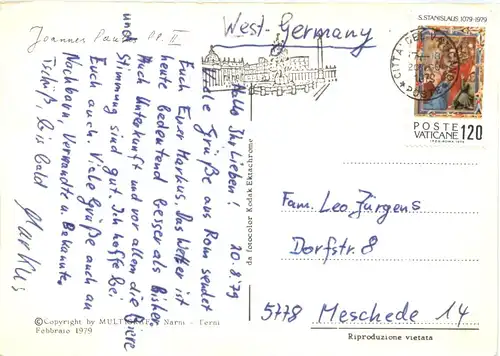 Joannes Paulus PP. II
West-Germany
S. STANISLAUS 1079-1979
CITTA' DEL VATICANO
POSTE
POSTE
VATICANE 120
20.8.79
Hallo Ihr Lieben!
Viele Grüße aus Rom sendet
Euch Euer Markus. Das Wetter ist
heute bedeutend besser als bisher.
Auch Unterkunft und vor allem die Biere
und Stimmung sind gut. Ich hoffe bei
Euch auch. Viele Grüße auch an
Nachbarn, Verwandte u. Bekannte.
Tschüß, bis bald Markus
da fotocolor Kodak Ektachrome
Fam. Leo Jürgens
Dorfstr. 8
5778 Meschede 14
©Copyright by Narni - Terni
Febbraio 1979
Riproduzione vietata